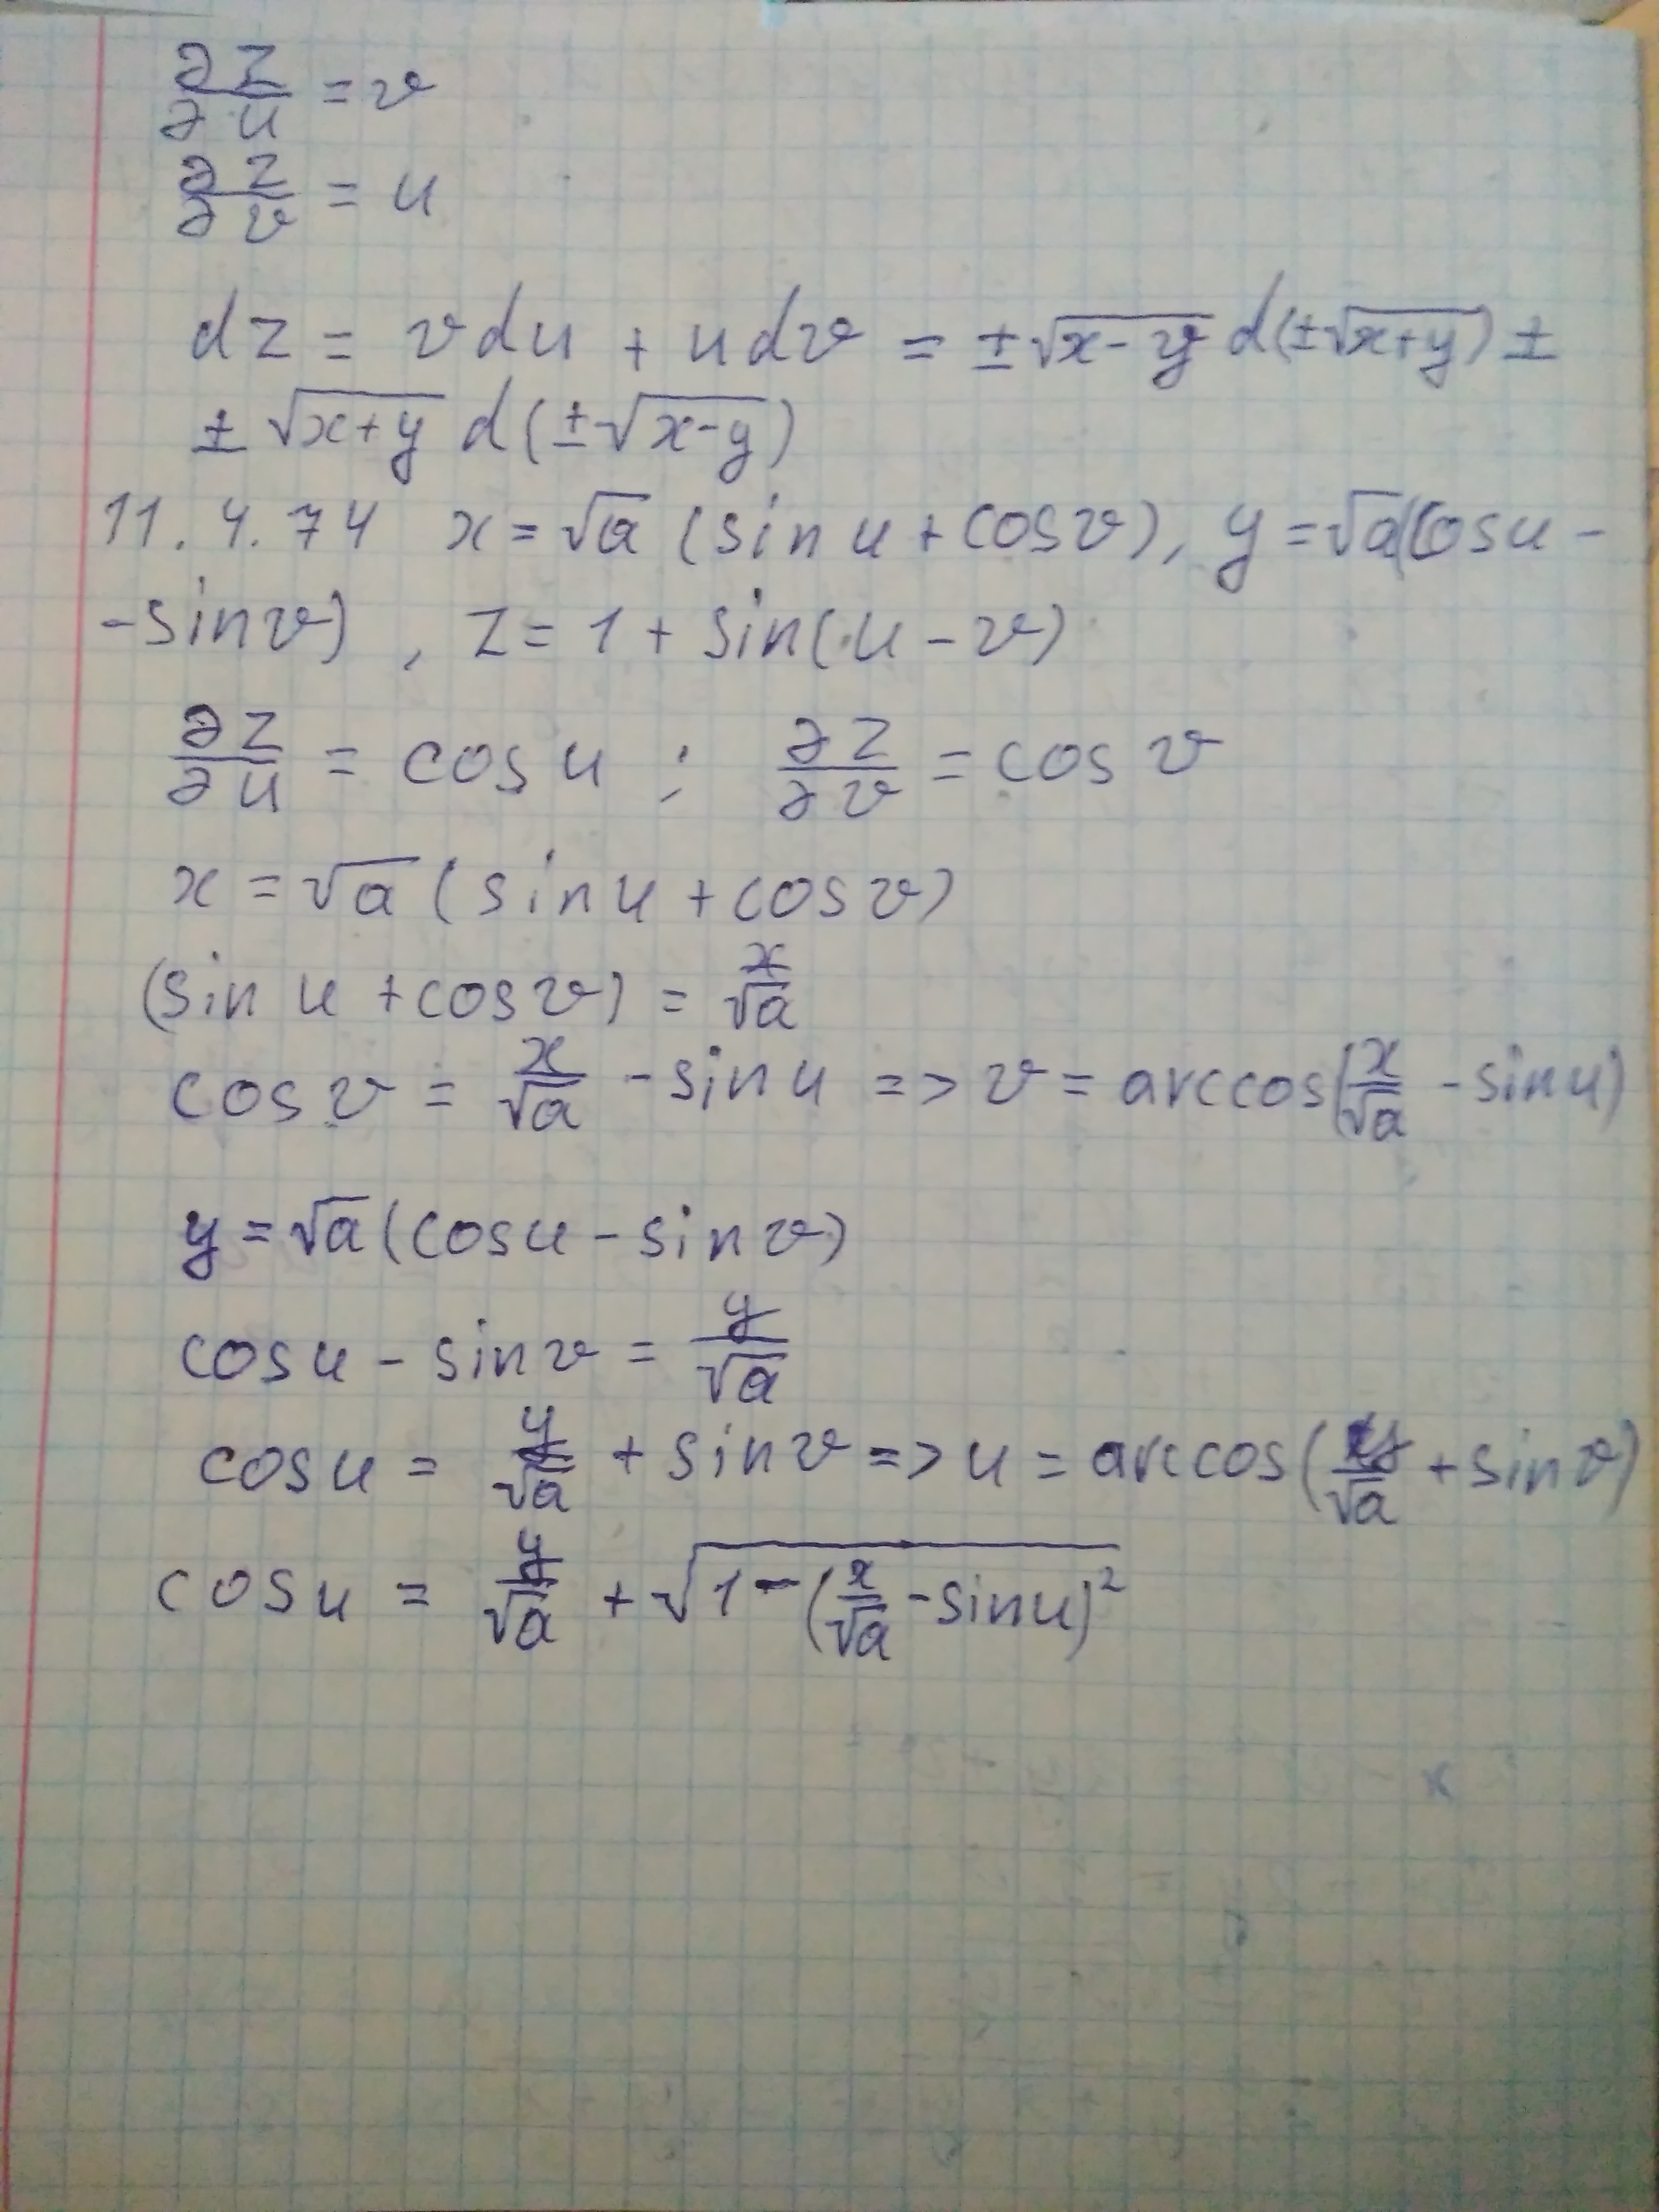 ∂z/∂u = v
∂z/∂v = u
dz = vdu + udv = ±√(x-y) d(±√(x+y)) ±
± √(x+y) d(±√(x-y))
11.4.74 x = √a (sin u + cos v), y = √a(cos u -
- sin v), z = 1 + sin(u - v)
∂z/∂u = cos u ; ∂z/∂v = cos v
x = √a (sin u + cos v)
(sin u + cos v) = x/√a
cos v = x/√a - sin u => v = arccos(x/√a - sin u)
y = √a (cos u - sin v)
cos u - sin v = y/√a
cos u = y/√a + sin v => u = arccos(y/√a + sin v)
cos u = y/√a + √(1 - (x/√a - sin u)²)